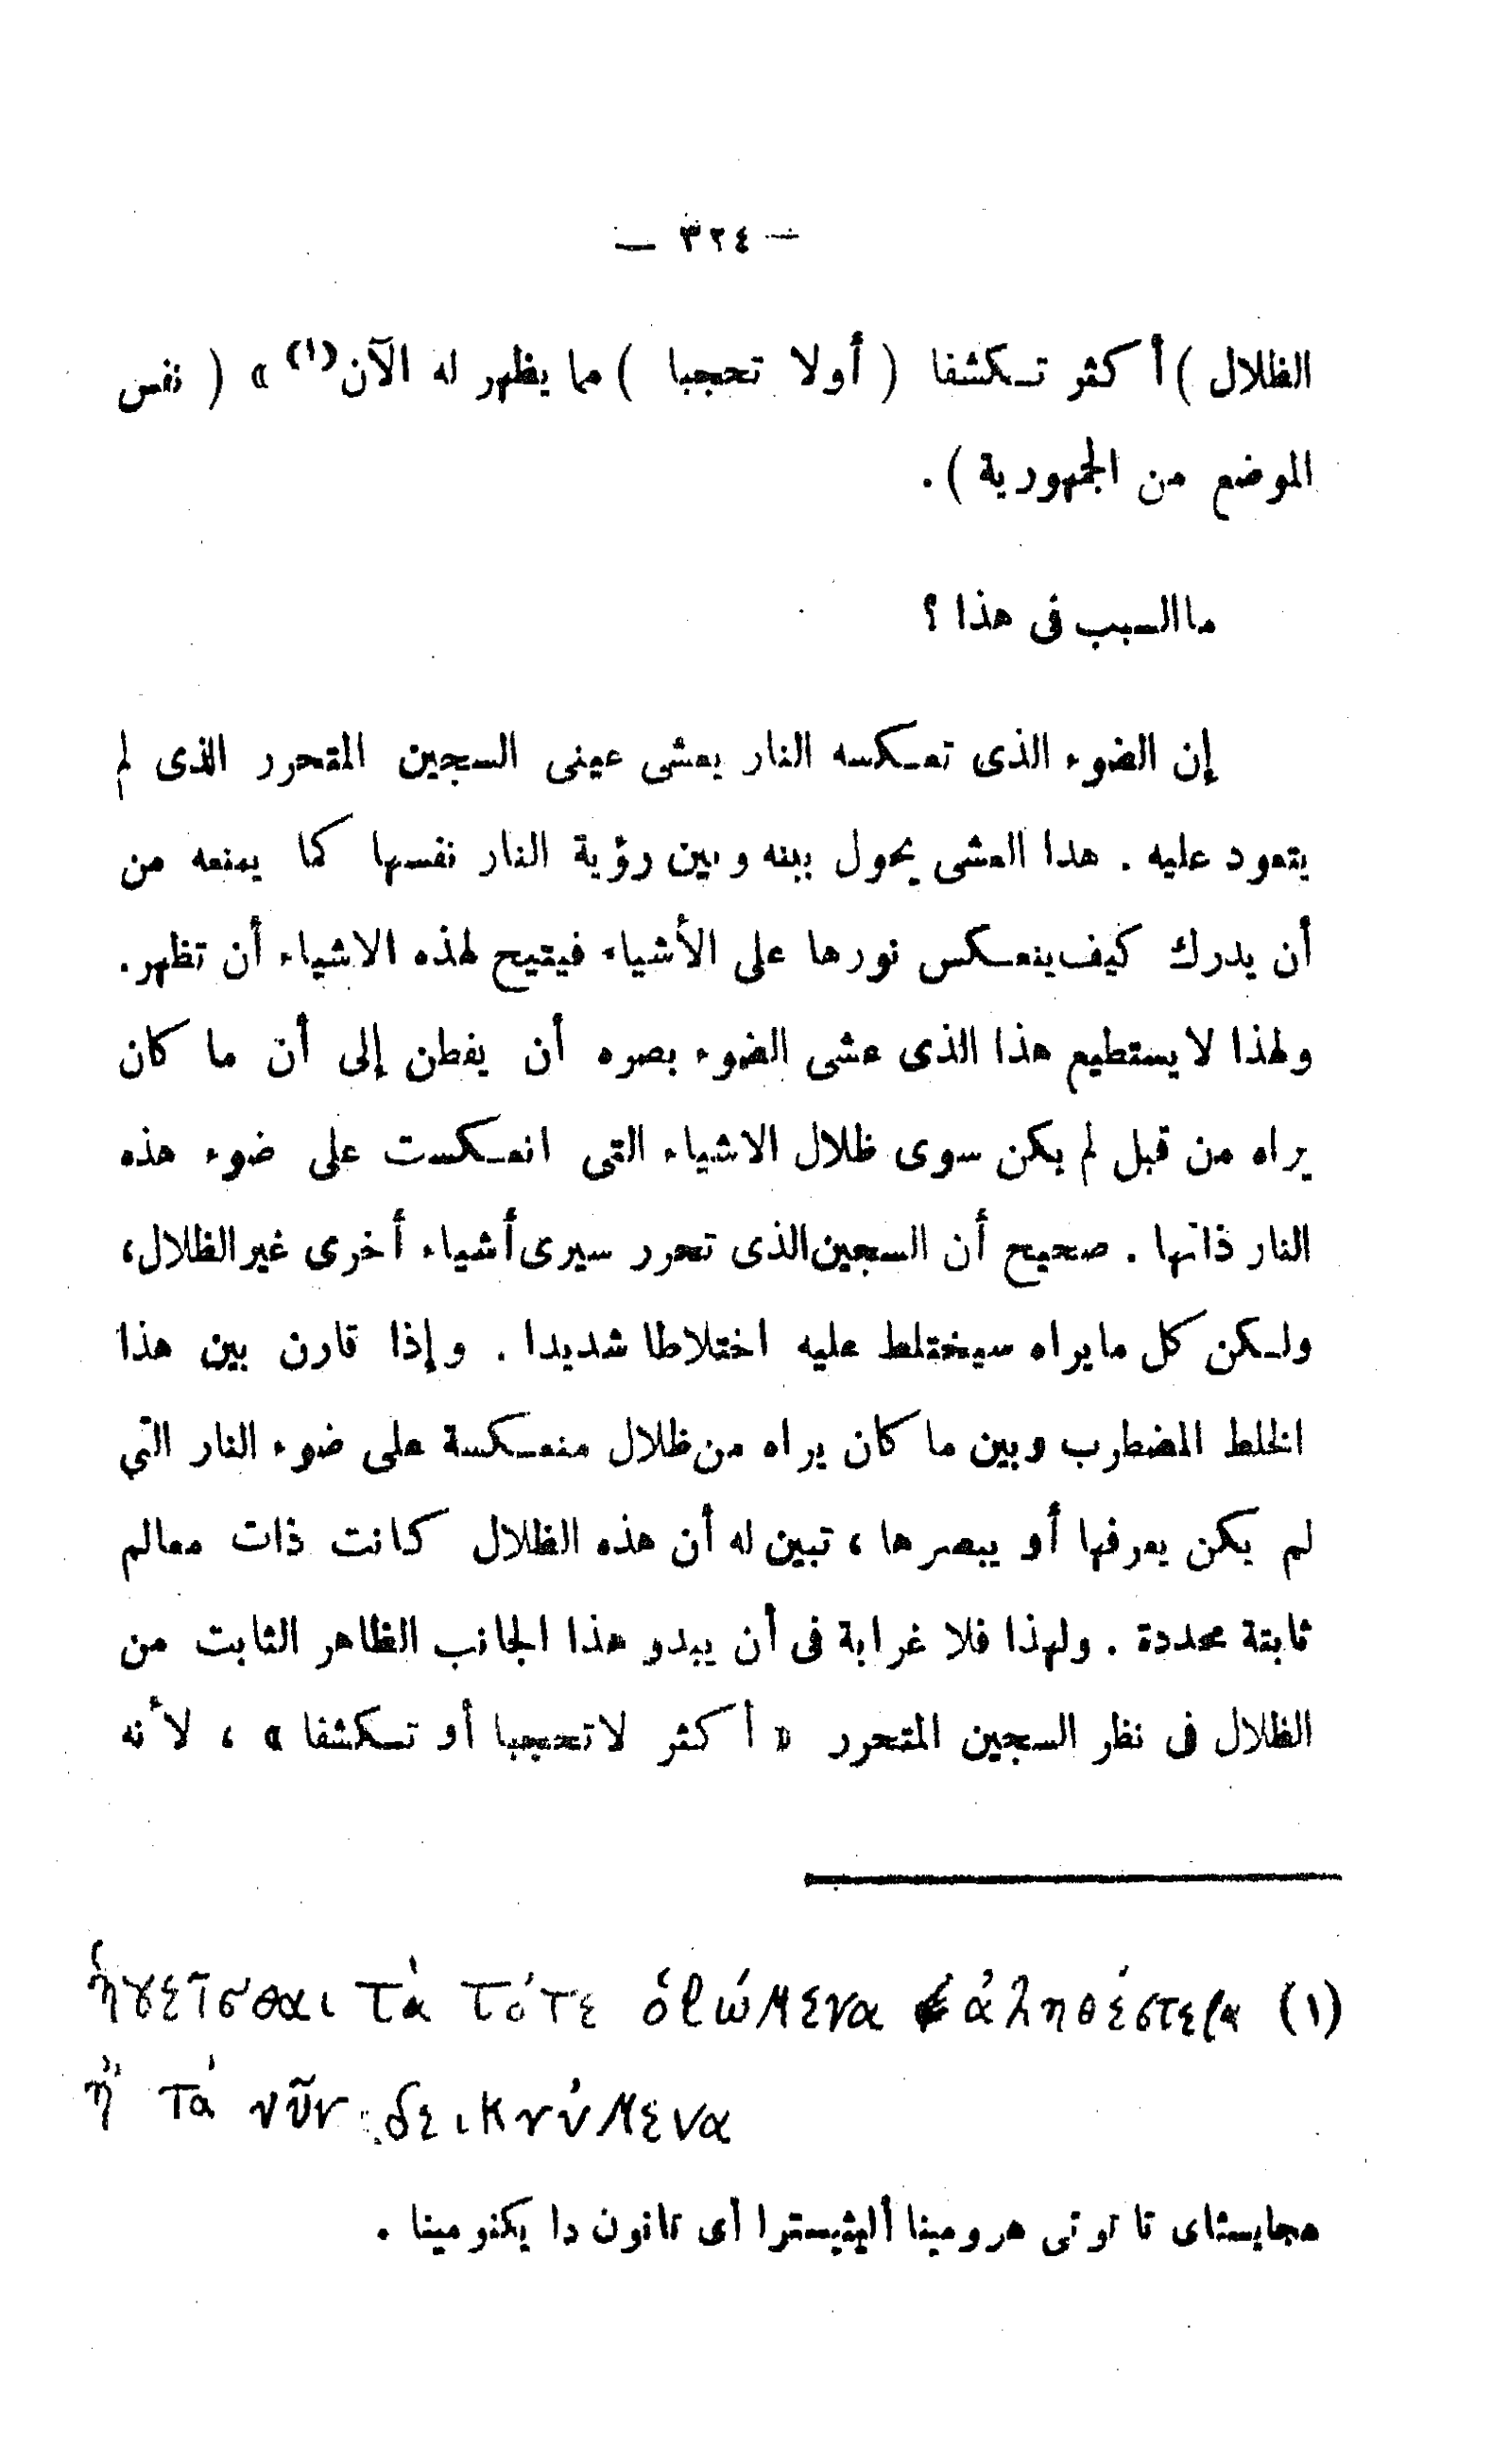 — ٣٢٤ —
الظلال ) أكثر تكشفا ( أولا تحجبا ) مما يظهر له الآن (١) » ( نفس
الموضع من الجمهورية ) .
ما السبب فى هذا ؟
إن الضوء الذى تعكسه النار يعشى عينى السجين المتحرر الذى لم
يتعود عليه . هذا العشى يحول بينه وبين رؤية النار نفسها كما يمنعه من
أن يدرك كيف ينعكس نورها على الأشياء فيتيح لهذه الاشياء أن تظهر .
ولهذا لا يستطيع هذا الذى عشى الضوء بصره أن يفطن إلى أن ما كان
يراه من قبل لم يكن سوى ظلال الاشياء التى انعكست على ضوء هذه
النار ذاتها . صحيح أن السجين الذى تحرر سيرى أشياء أخرى غير الظلال ،
ولكن كل ما يراه سيختلط عليه اختلاطا شديدا . وإذا قارن بين هذا
الخلط المضطرب وبين ما كان يراه من ظلال منعكسة على ضوء النار التي
لم يكن يعرفها أو يبصرها ، تبين له أن هذه الظلال كانت ذات معالم
ثابتة محددة . ولهذا فلا غرابة فى أن يبدو هذا الجانب الظاهر الثابت من
الظلال فى نظر السجين المتحرر « أكثر لا تحجبا أو تكشفا » ، لأنه
ἡγεῖσθαι τὰ τότε ὁρώμενα ἀληθέστερα (١)
ἢ τὰ νῦν δεικνύμενα
هجايسثاى تا توتى هرومينا أليثيسترا أى تانون دا يكنومينا .